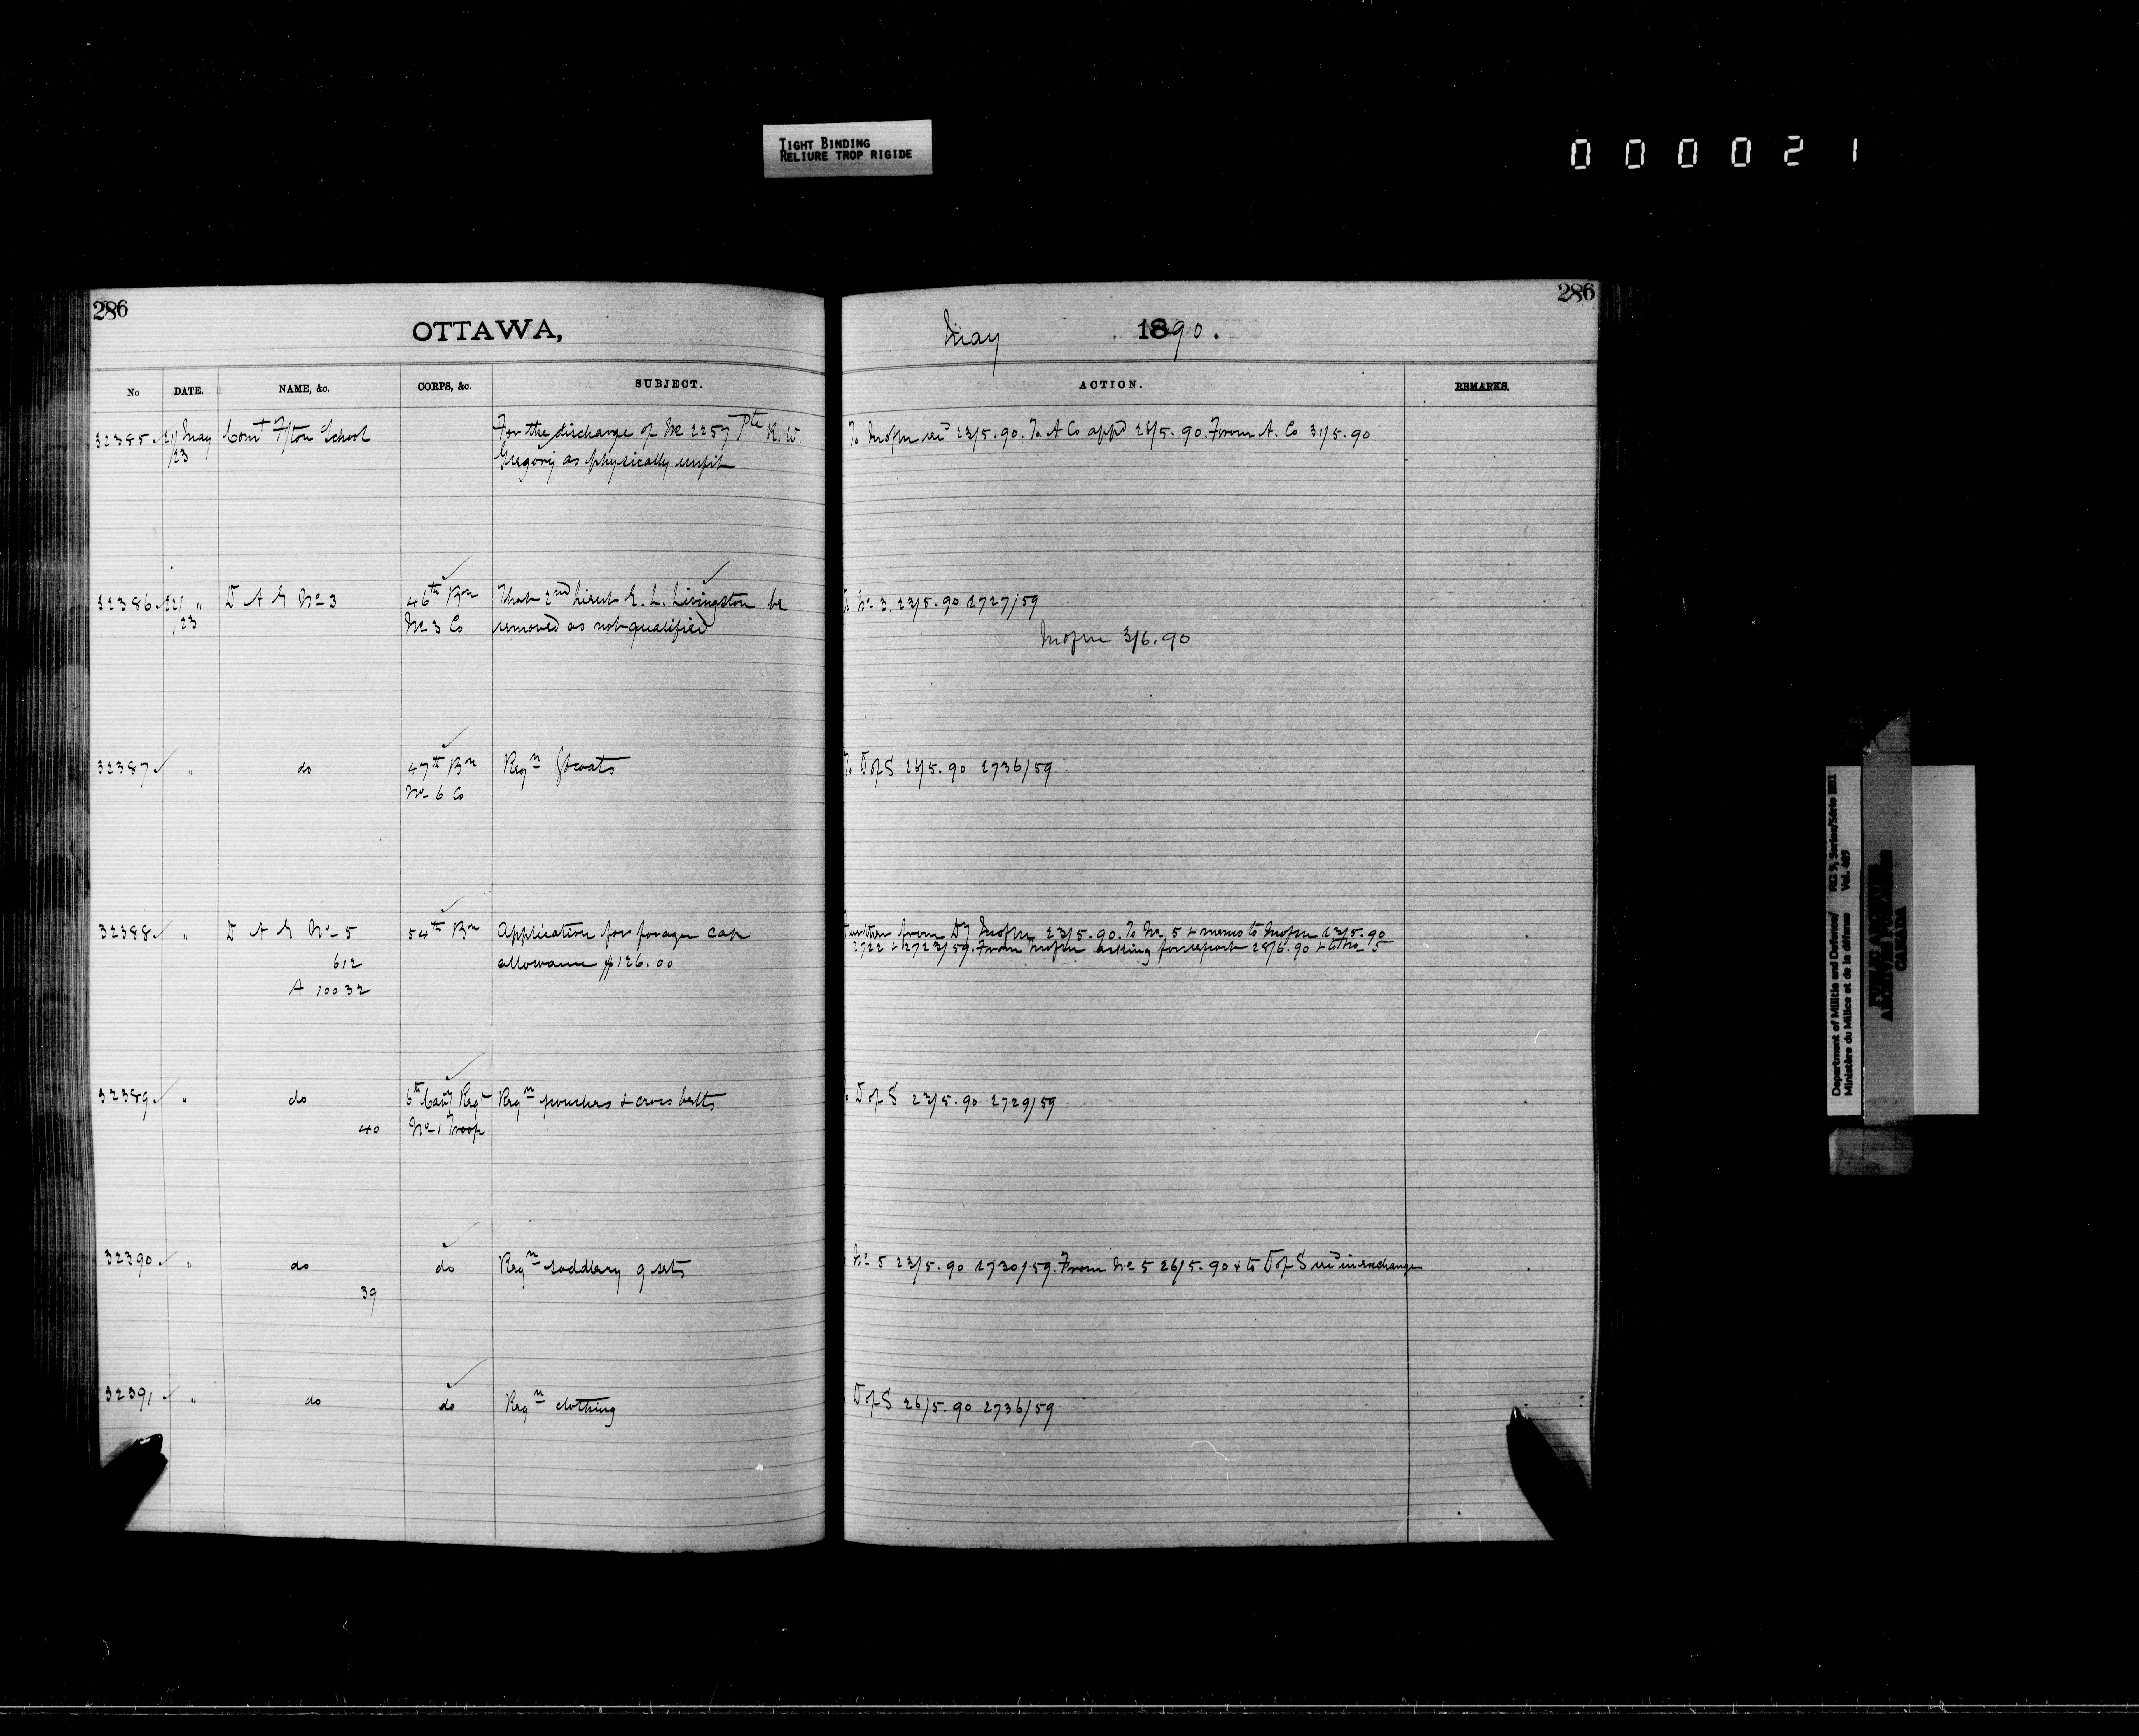 TIGHT BINDING
RELIURE TROP RIGIDE
000021
286
OTTAWA,
No DATE. NAME, &c. CORPS, &c. SUBJECT.
32385 21/23 May Comt Fton School For the discharge of No 2257 Pte R. W.
Gregory as physically unfit
32386 22/23 " D A G No 3 46th Bn That 2nd Lieut E. L. Livingston be
No 3 Co removed as not qualified
32387 " do 47th Bn Reqn Gtcoats
No 6 Co
32388 " D A G No 5 54th Bn Application for forage cap
612 allowance $126.00
A 10032
32389 " do 6th Cavy Regt Reqn pouches & cross belts
40 No 1 Troop
32390 " do do Reqn saddlery 9 sets
39
32391 " do do Reqn clothing
286
May 1890.
ACTION. REMARKS.
To 23/5.90. To A Co appd 26/5.90. From A. Co 31/5.90
No 3. 23/5.90 2727/59
3/6.90
To D of S 26/5.90 2736/59
Further from 23/5.90. To No 5 & memo to 23/5.90
2722 & 2723/59. From asking for report 28/6.90 & to No 5
D of S 23/5.90 2729/59
No 5 23/5.90 2730/59. From No 5 26/5.90 & to D of S in exchange
D of S 26/5.90 2736/59
Department of Militia and Defence/ RG 9, Series/Série
Ministère du Milice et de la défense Vol. 489
PUBLIC ARCHIVES
ARCHIVES PUBLIQUES
CANADA